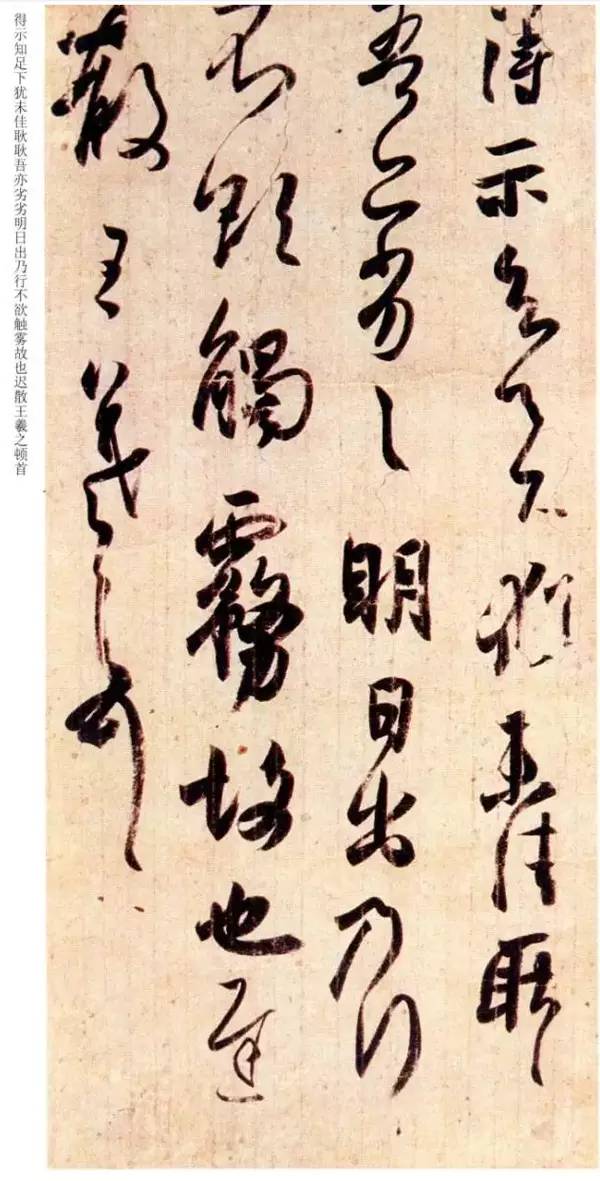 得示知足下猶未佳耿〻
吾亦劣〻明日出乃行
不欲觸霧故也遲
散王羲之頓首
得示知足下犹未佳耿耿吾亦劣劣明日出乃行不欲触雾故也迟散王羲之顿首